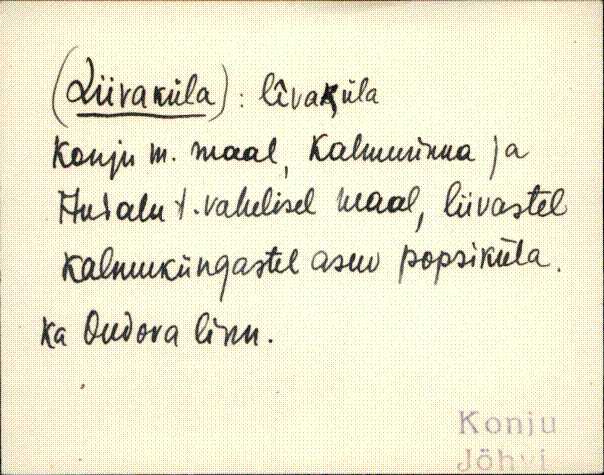 (Liivaküla): līvaküla
Konju m. maal, Kalmulinna ja
t. vahelisel maal, liivastel
Kalmuküngastel asuv popsiküla.
Ka Oudova linn.
Konju
Jõhvi